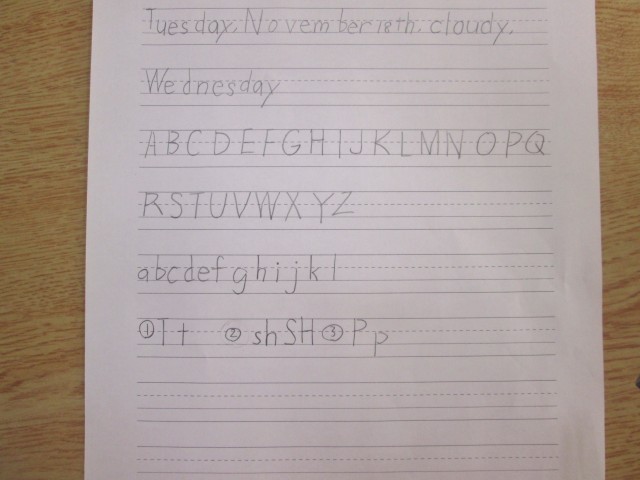 Tuesday, November 18th, cloudy.
Wednesday
A B C D E F G H I J K L M N O P Q
R S T U V W X Y Z
a b c d e f g h i j k l
① T t ② sh SH ③ P p